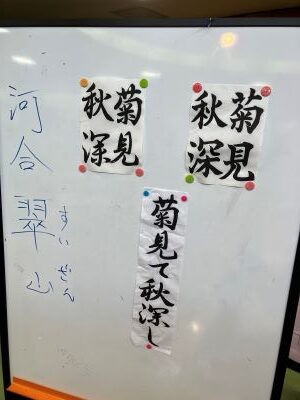 菊見
秋深
菊見
秋深
菊見て秋深し
河合翠山
すいざん